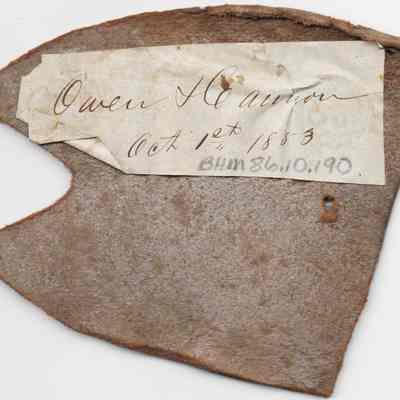 Owen & Cannon
Oct 1st, 1883
BHM 86.10.190